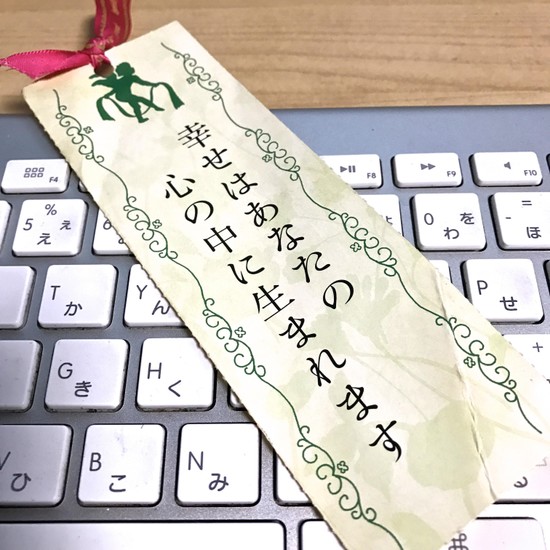 幸せはあなたの
心の中に生まれます
F4
F8
F9
F10
%
5 ぇ
え
0 を
わ
=
- ほ
T
か
Y
ん
P
せ
G
き
H
く
+
ひ
B
こ
N
み